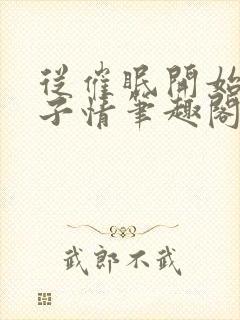 從催眠開始
子情筆趣閣
武郎不武